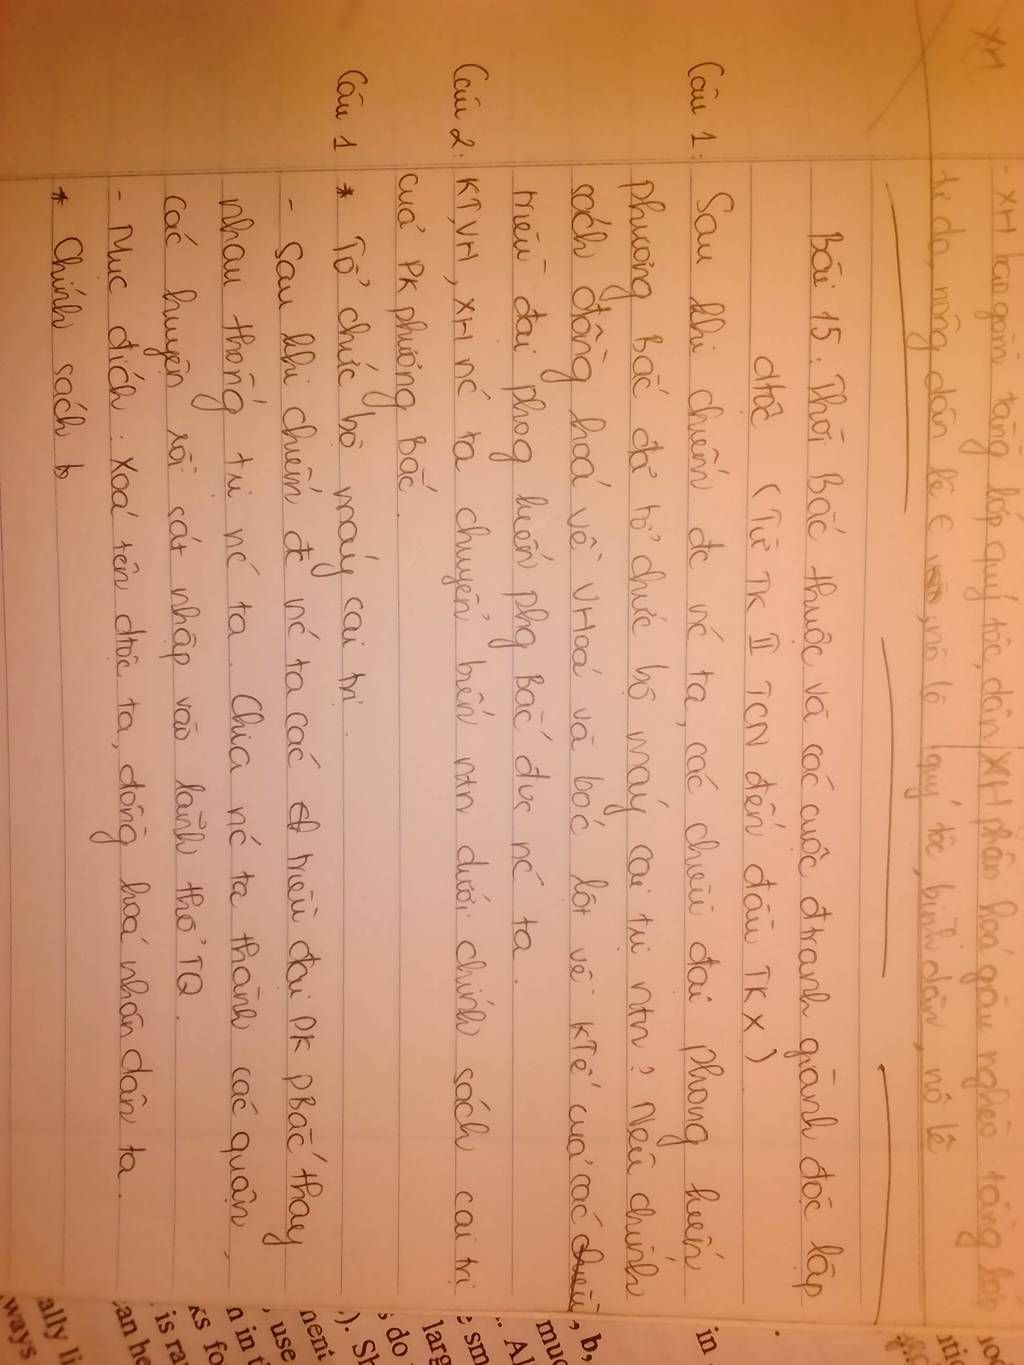 XH
- XH bao gồm tầng lớp quý tộc, dân
tự do, nông dân lệ €, nô lệ
XH phân hoá giàu nghèo tầng lớp
quý tộc, bình dân, nô lệ
Bài 15. Thời Bắc thuộc và các cuộc đtranh giành độc lập
dtộc (Từ TK II TCN đến đầu TK X)
Câu 1: Sau khi chiếm đc nc ta, các chiều đại phong kiến
phương Bắc đã tổ chức bộ máy cai trị ntn? Nêu chính
sách đồng hoá về VHoá và bóc lột về KTế của các
triều đại phog kiến phg Bắc đvs nc ta.
Câu 2: KT, VH, XH nc ta chuyển biến ntn dưới chính sách cai trị
của PK phương Bắc.
Câu 1 * Tổ chức bộ máy cai trị.
- Sau khi chiếm đ nc ta các triều đại PK pBắc thay
nhau thống trị nc ta. Chia nc ta thành các quận,
các huyện rồi sát nhập vào lãnh thổ TQ.
- Mục đích: Xoá tên dtộc ta, đồng hoá nhân dân ta.
* Chính sách b
in
, b,
muc
. Al
: sm
larg
; do
). Sh
neni
, use
n in t
ks fo
is ra
an he
ally li
ways